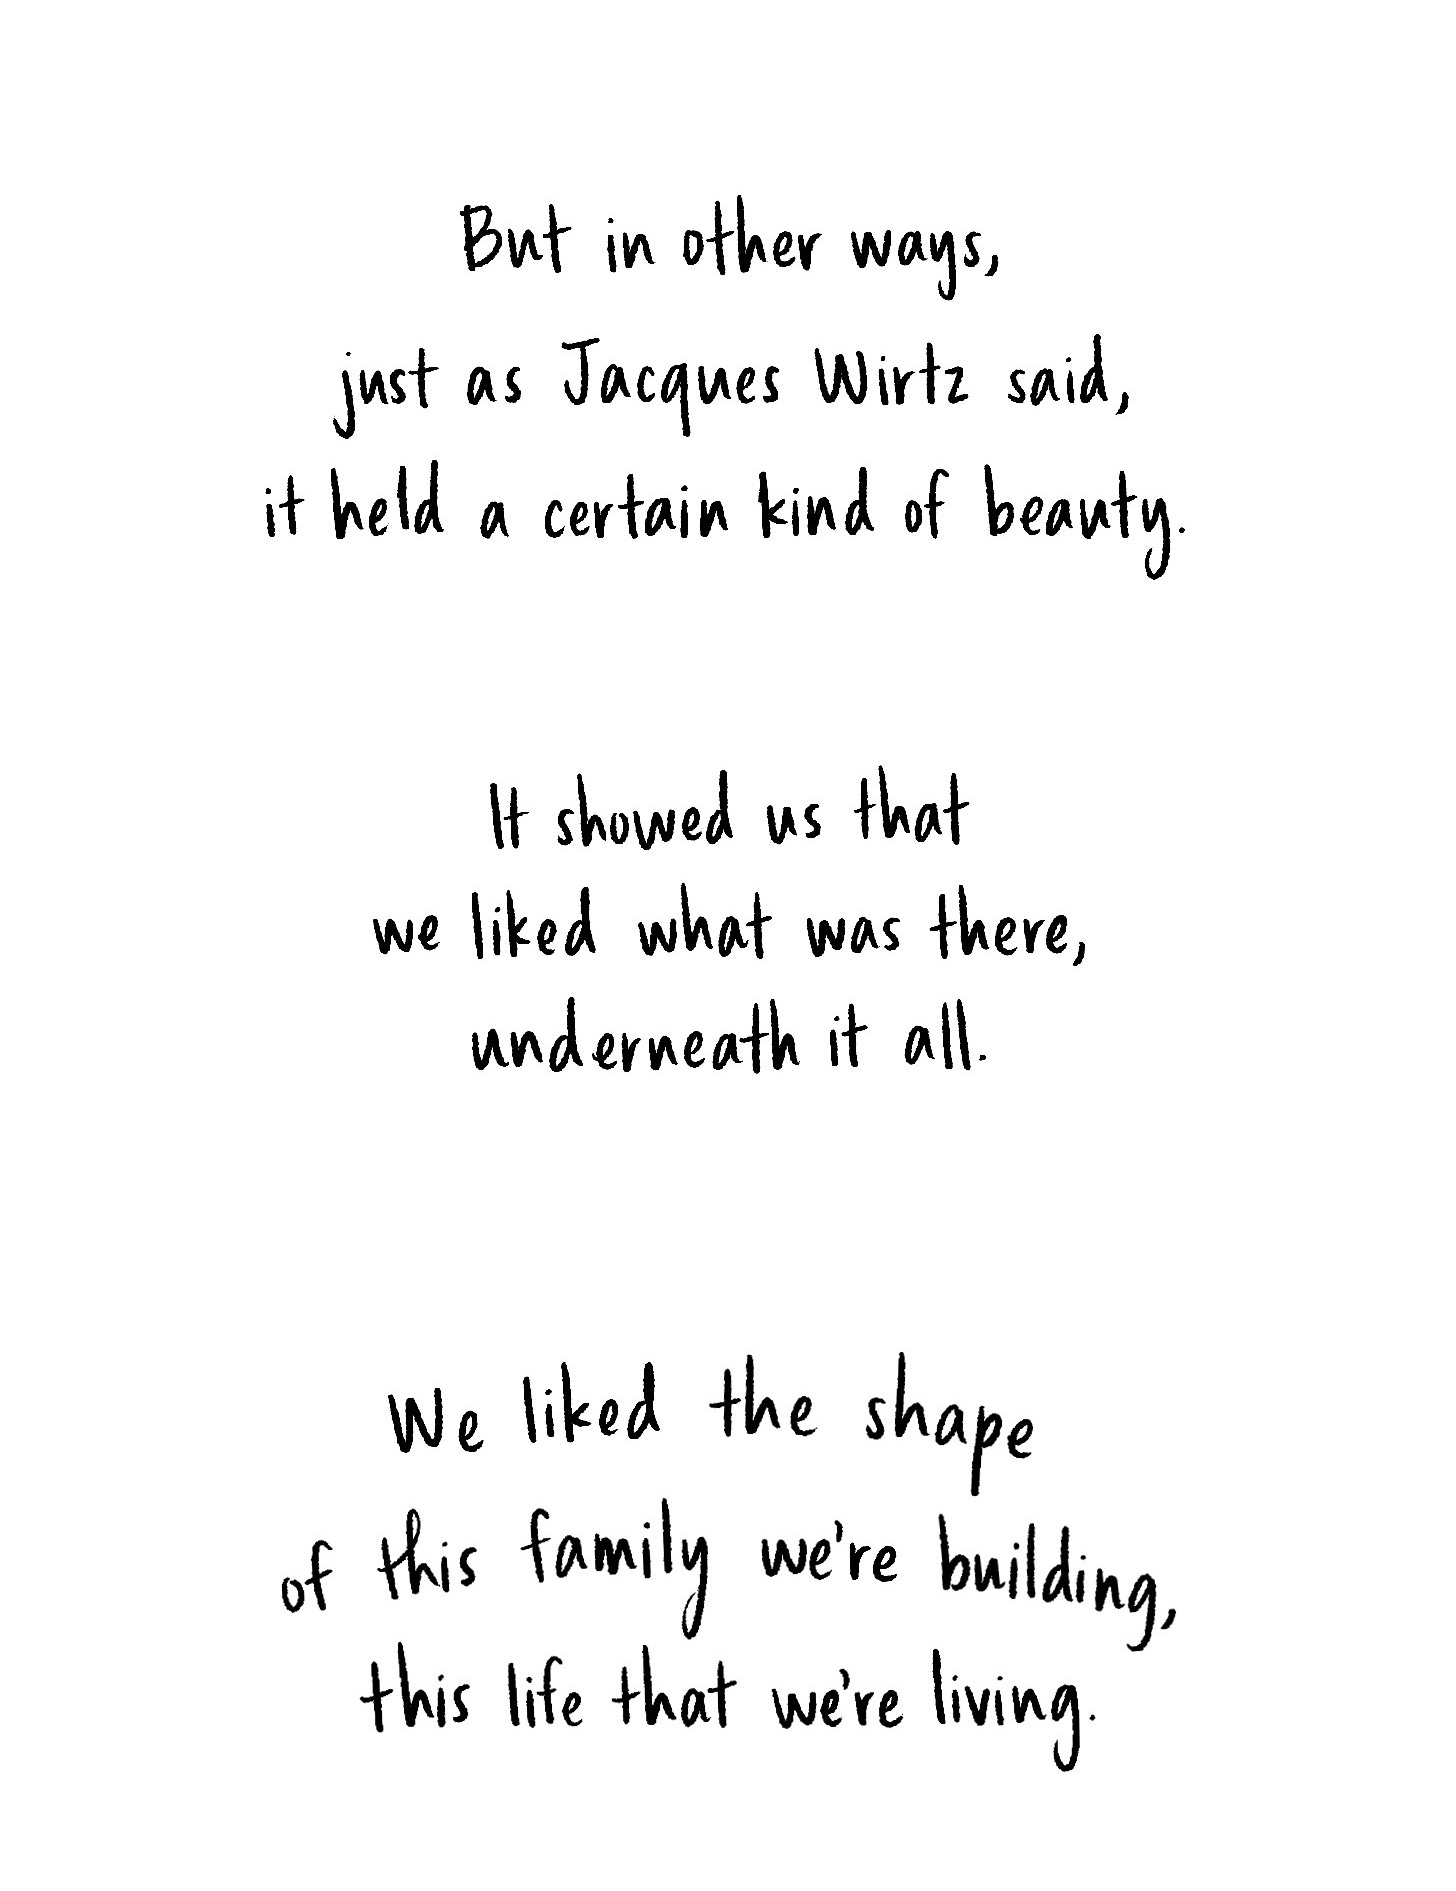 But in other ways,
just as Jacques Wirtz said,
it held a certain kind of beauty.
It showed us that
we liked what was there,
underneath it all.
We liked the shape
of this family we're building,
this life that we're living.